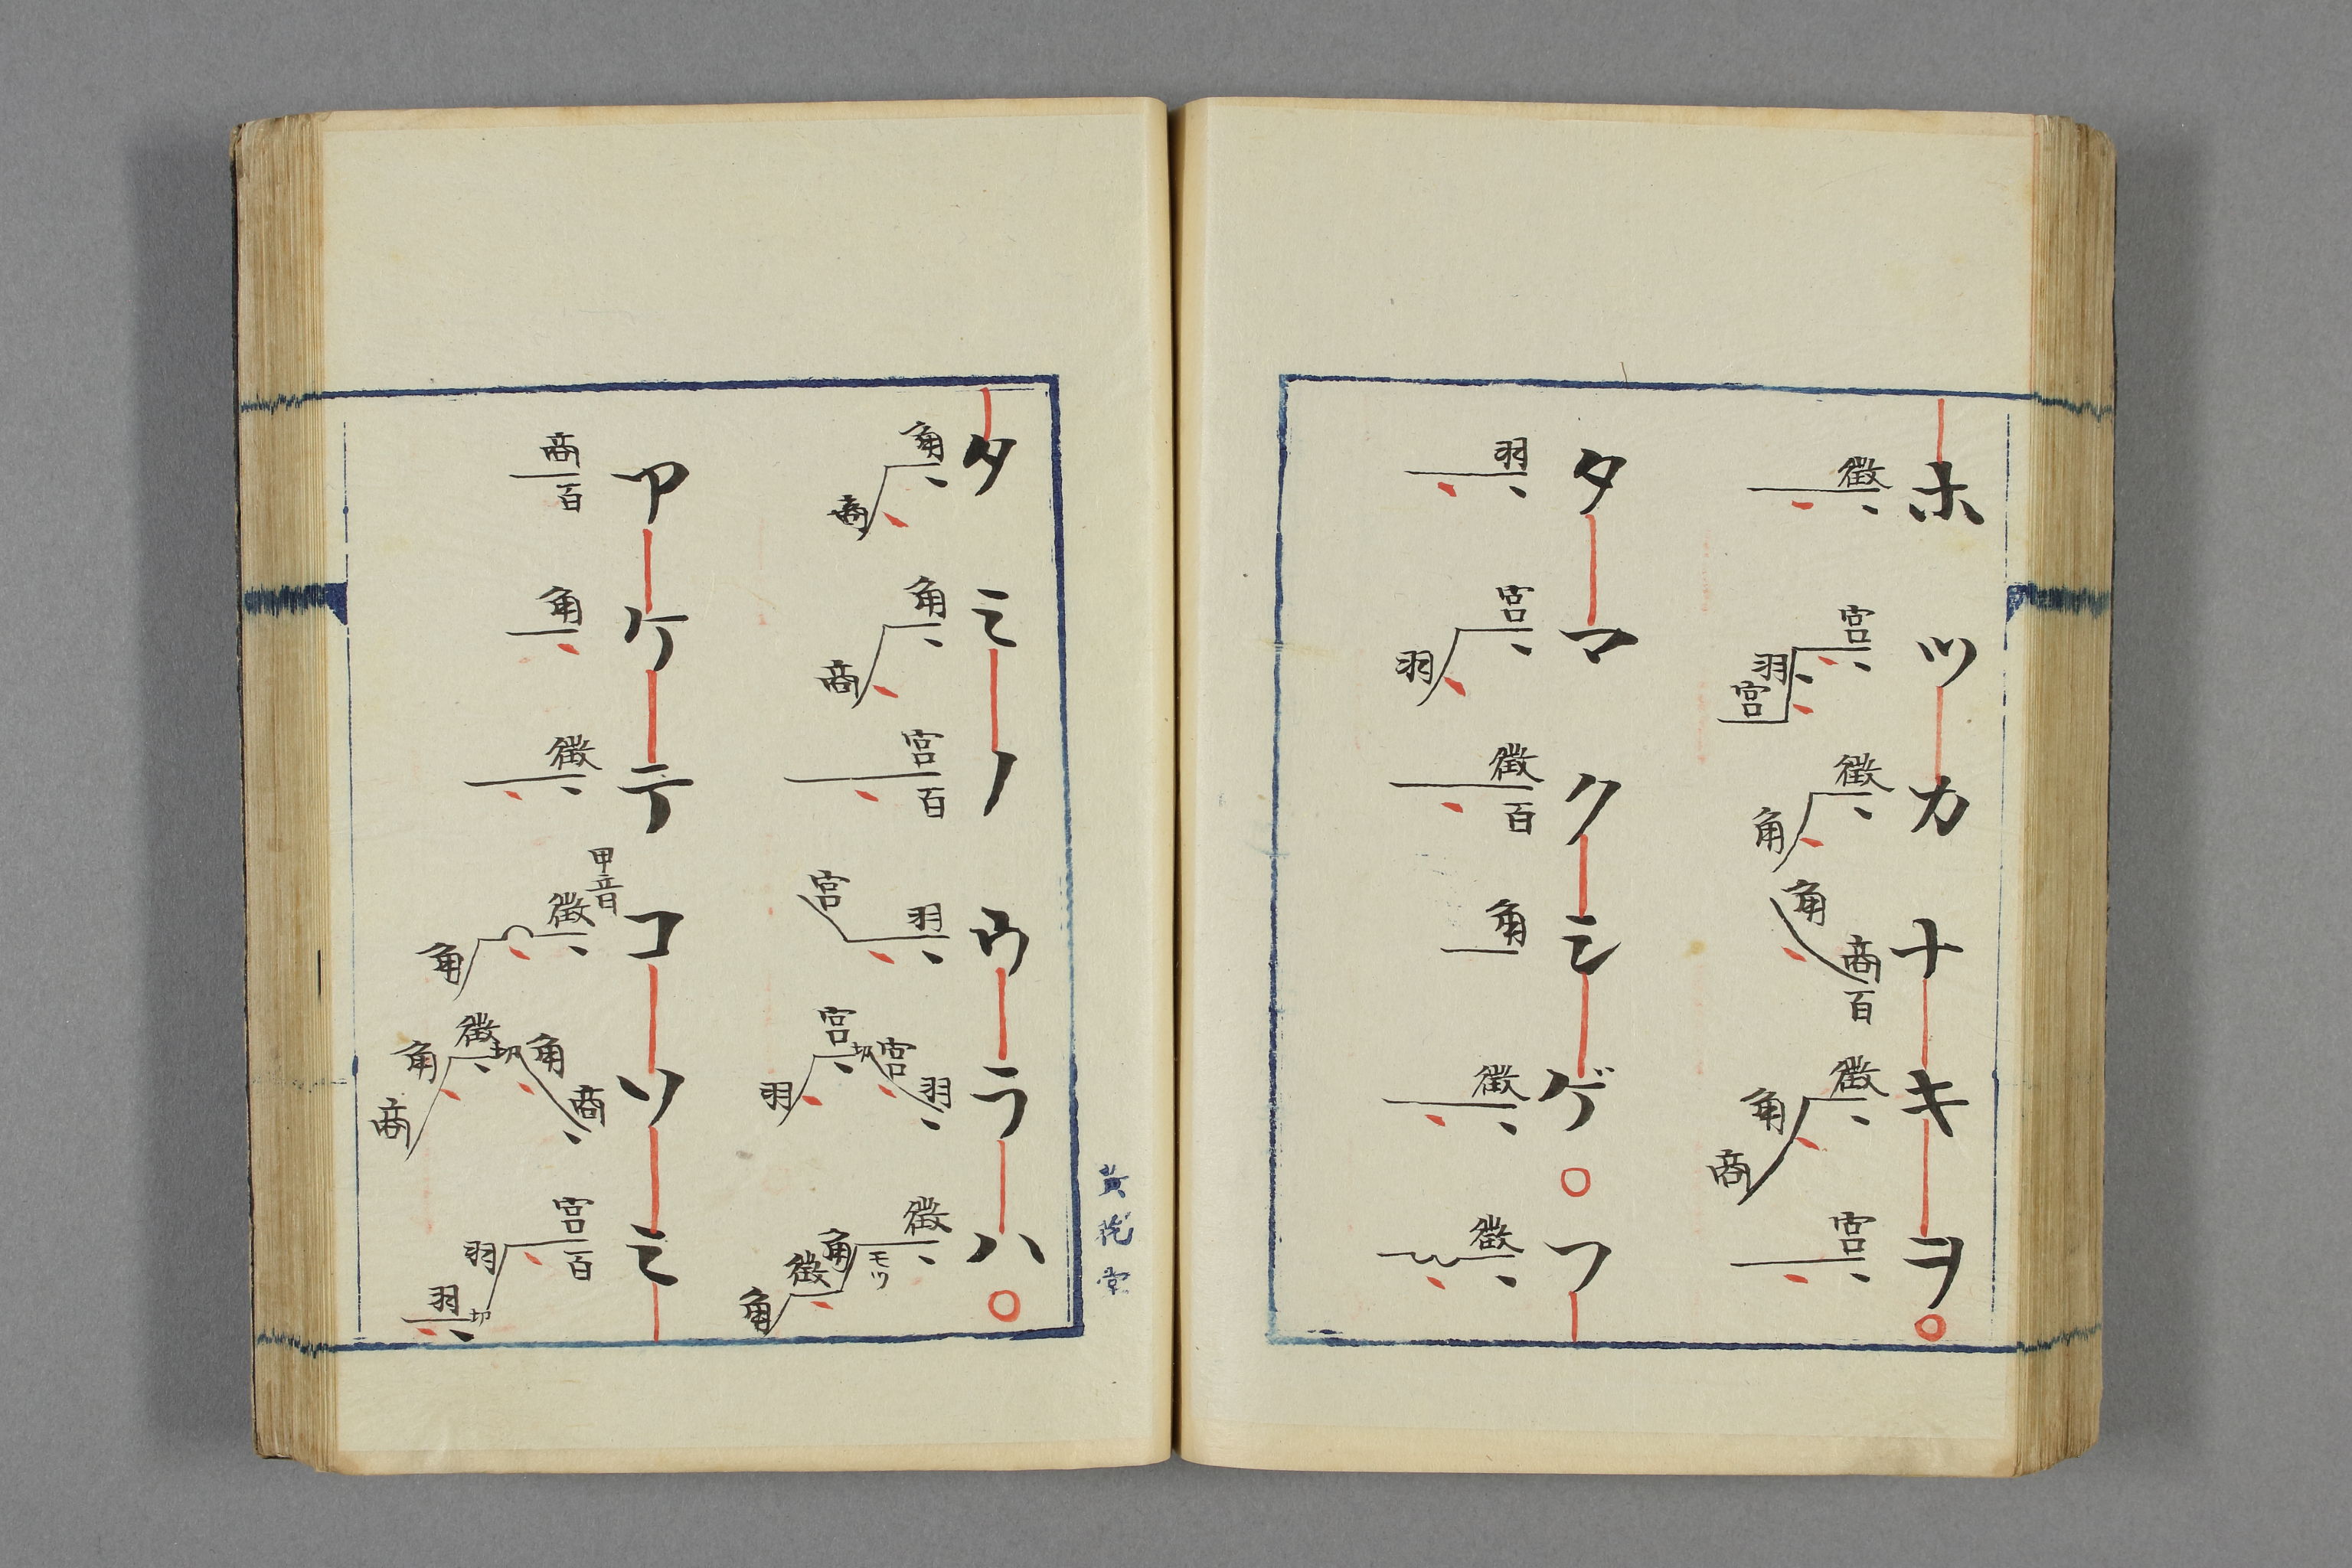 ホツカナキヲ
徴 宮 羽 宮 徴 角 角 商 百 徴 角 商 宮
タマクシゲ○フ
羽 宮 羽 徴 百 角 徴 徴
タミノウラハ
角 商 角 商 宮 百 宮 羽 宮 切 宮 羽 羽 徴 モツ 角 徴 角
アケテコソミ
商 百 角 徴 甲音 徴 角 徴 切 角 角 商 商 宮 百 羽 羽 切
黄 堂